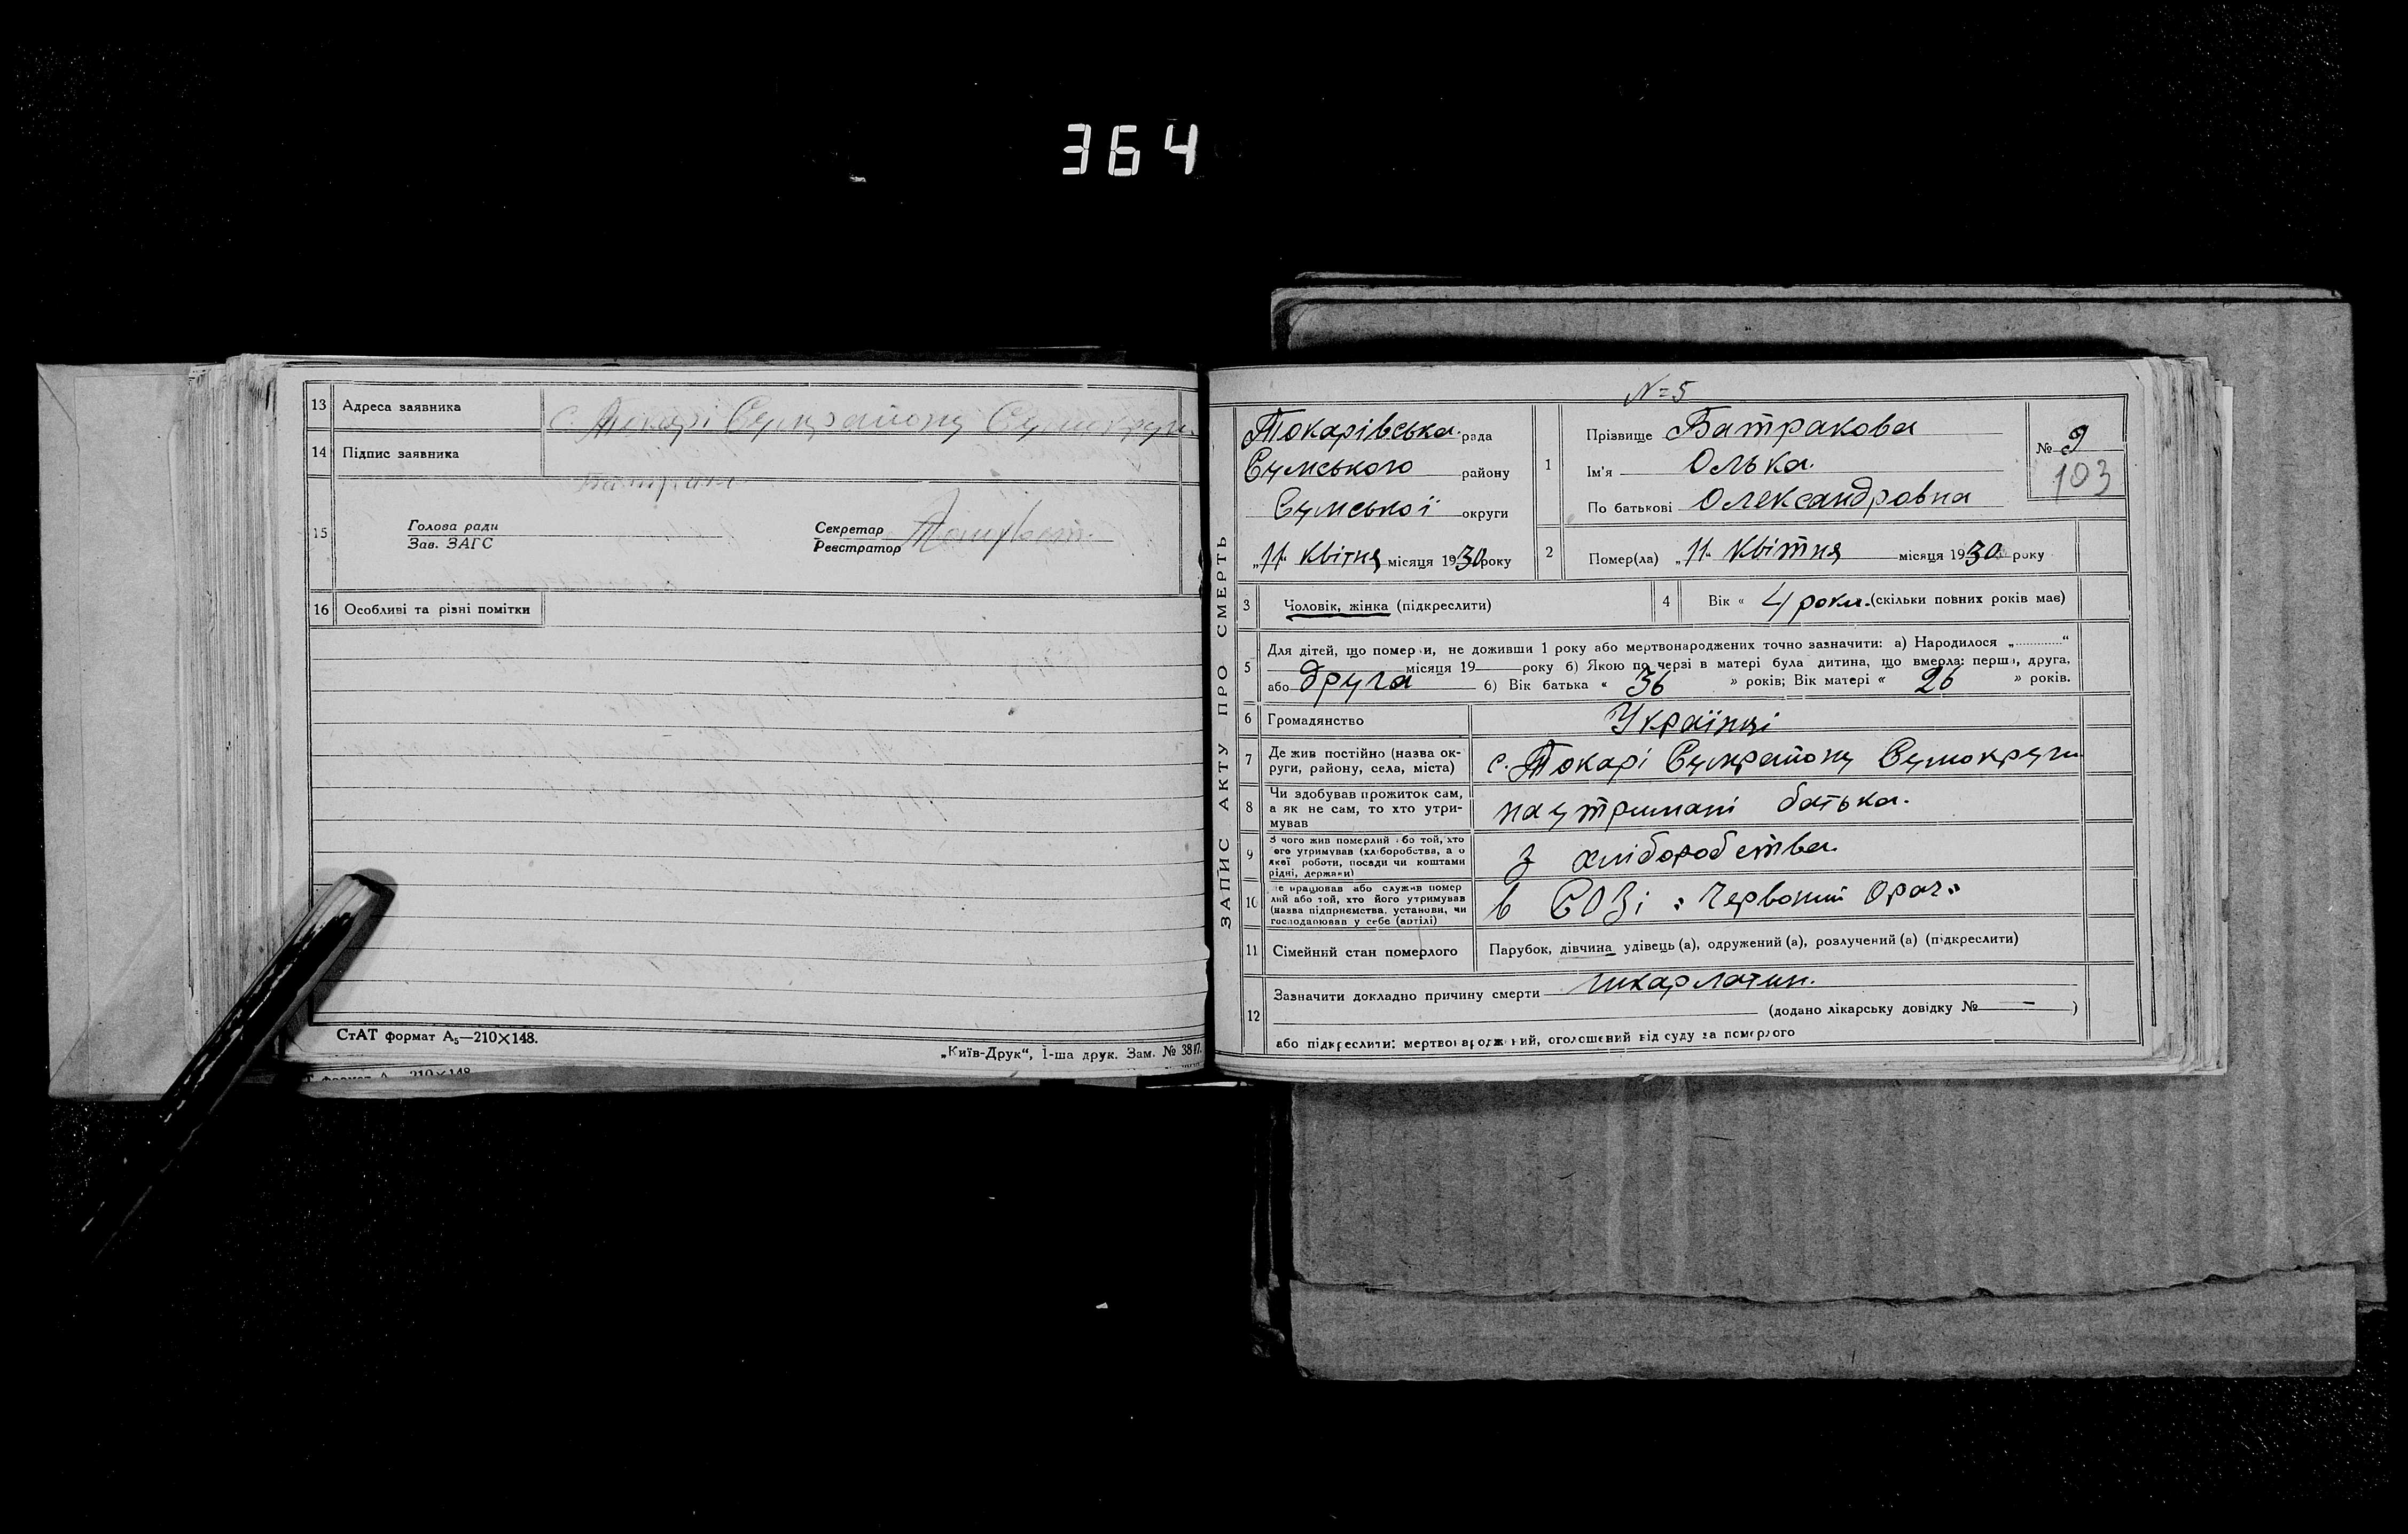 364
13 Адреса заявника с. Токарі Сумрайону Сумокруги
14 Підпис заявника
15 Голова ради
Зав. ЗАГС
Секретар
Реєстратор
16 Особливі та різні помітки
СтАТ формат А₅—210×148.
„Київ-Друк“, 1-ша друк. Зам. №
ЗАПИС АКТУ ПРО СМЕРТЬ
№=5
Токарівська рада
Сумського району
Сумської округи
„11“ Квітня місяця 1930 року
1 Прізвище Батракова
Ім'я Олька.
По батькові Олександровна
№ 9
103
2 Помер(ла) „11“ Квітня місяця 1930 року
3 Чоловік, жінка (підкреслити)
4 Вік « 4 роки. (скільки повних років має)
5 Для дітей, що померли, не доживши 1 року або мертвонароджених точно зазначити: а) Народилося „ “
місяця 19 року б) Якою по черзі в матері була дитина, що вмерла: перша, друга,
або друга б) Вік батька « 36 » років; Вік матері « 26 » років.
6 Громадянство Українці
7 Де жив постійно (назва ок-
руги, району, села, міста) с. Токарі Сумрайону Сумокруги
8 Чи здобував прожиток сам,
а як не сам, то хто утри-
мував на утримані батька.
9 З чого жив померлий або той, хто
його утримував (хліборобства, а о
якої роботи, посади чи коштами
рідні, держави) з хліборобства
10 Де працював або служив помер
лий або той, хто його утримував
(назва підприємства, установи, чи
господарював у себе (артілі) в СОЗі „Червоний Орач“
11 Сімейний стан померлого Парубок, дівчина удівець (а), одружений (а), розлучений (а) (підкреслити)
12 Зазначити докладно причину смерти шкарлатин.
(додано лікарську довідку № — )
або підкреслити: мертвонароджений, оголошений від суду за померлого